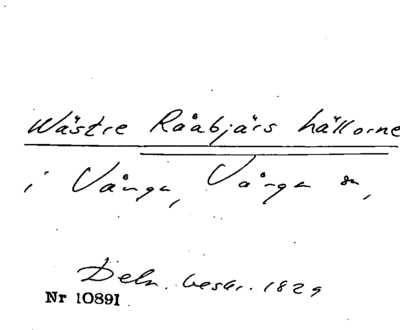 Wästre Råabjärs hällorne
i Vånga, Vånga sn,
Deln. beskr. 1829
Nr 10891